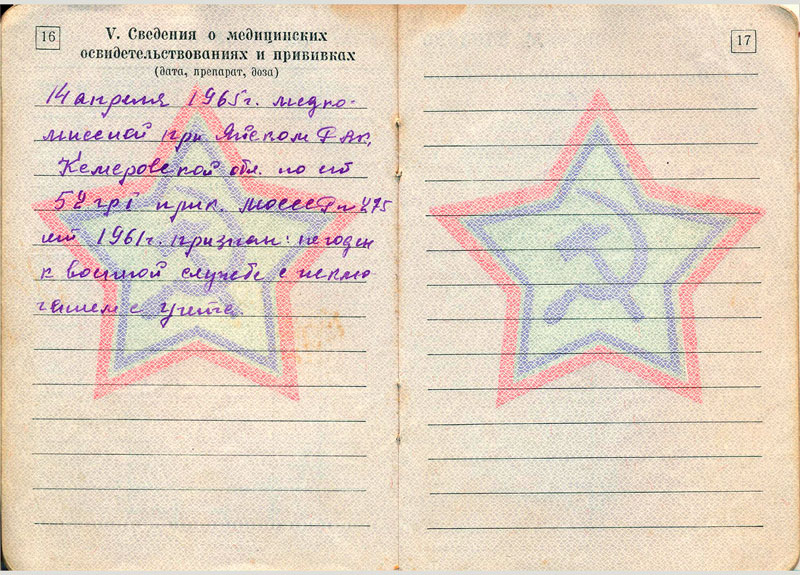 16
V. Сведения о медицинских
освидетельствованиях и прививках
(дата, препарат, доза)
14 апреля 1965г. медко-
миссией при
Кемеровской обл. по ст
52 гр I прик. 275
от 1961г. признан: негоден
к военной службе с исклю
чением с учета.
17